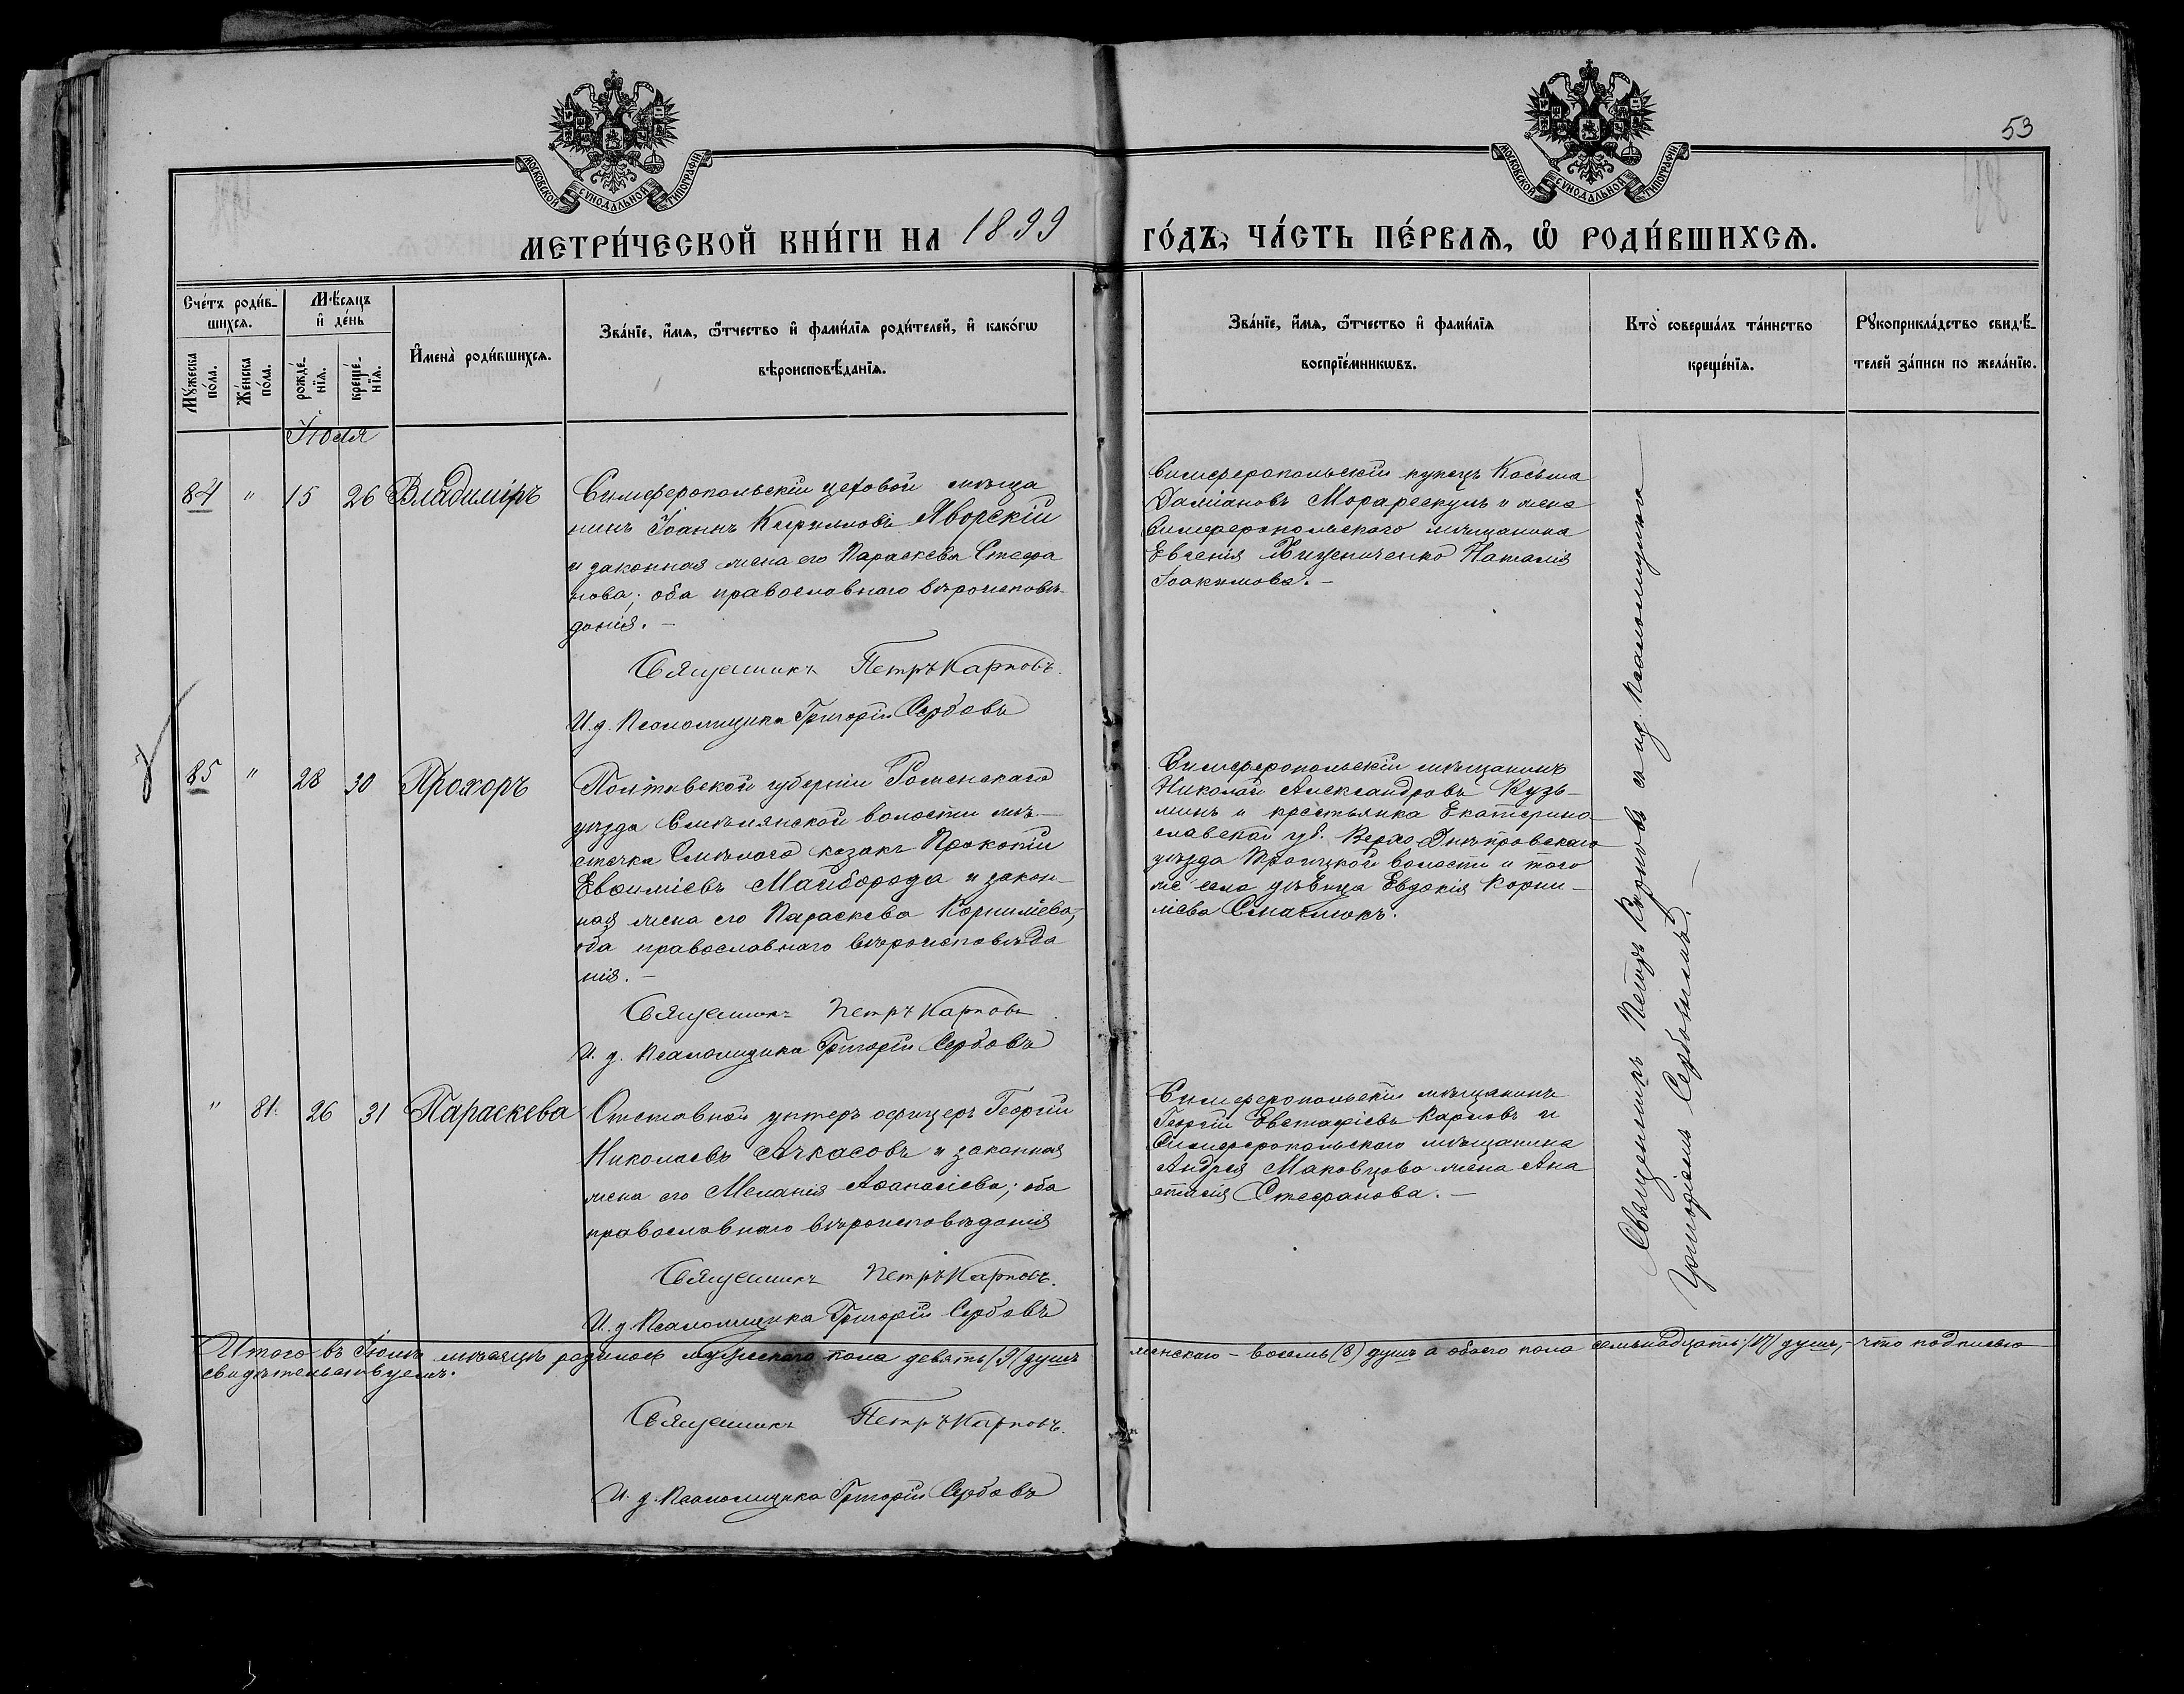 53
МОСКОВСКОЙ СѴНОДАЛЬНОЙ ТИПОГРАФІИ.
МОСКОВСКОЙ СѴНОДАЛЬНОЙ ТИПОГРАФІИ.
МЕТРИ́ЧЕСКОЙ КНИ́ГИ НА 1899 ГО́ДЪ, ЧА́СТЬ ПЕ́РВАѦ, Ѡ҆ РОДИ́ВШИХСѦ.
Сче́тъ роди́в-
шихсѧ.
Мꙋ́жеска
по́ла.
Же́нска
по́ла.
Мѣ́сѧцъ
и҆ де́нь
рожде́-
нїѧ.
креще́-
нїѧ.
И҆мена̀ роди́вшихсѧ.
Зва́нїе, и҆́мѧ, ѻ҆́тчество и҆ фами́лїѧ роди́телей, и҆ како́гѡ
вѣроисповѣ́данїѧ.
Зва́нїе, и҆́мѧ, ѻ҆́тчество и҆ фами́лїѧ
воспрїе́мникѡвъ.
Кто̀ соверша́лъ та́инство
креще́нїѧ.
Рꙋкоприкла́дство свидѣ́-
телей за́писи по жела́нїю.
Іюля
84 " 15 26 Владиміръ
Симферопольскій цеховой мѣща
нинъ Іоаннъ Кирилловъ Яворскій
и законная жена его Параскева Стефа
нова; оба православнаго вѣроисповѣ-
данія. –
Священникъ Петръ Карповъ.
И. д. Псаломщика Григорій Сербовъ
Симферопольскій купецъ Косьма
Даміановъ Морарескулъ и жена
Симферопольскаго мѣщанина
Евгенія Наталія
Іоакимова. –
85 " 28 30 Прохоръ
Полтавской губерніи Роменскаго
уѣзда Смѣлянской волости мѣ-
стечка Смѣлаго козакъ Прокопій
Евѳиміевъ Майборода и закон-
ная жена его Параскева Корниліева,
оба православнаго вѣроисповѣда
нія. –
Священникъ Петръ Карповъ
И. д. Псаломщика Григорій Сербовъ
Симферопольскій мѣщанинъ
Николай Александровъ Кузь-
минъ и крестьянка Екатерино-
славской губ. Верхо-Днѣпровскаго
уѣзда Троицкой волости и того
же села дѣвица Евдокія Корни-
ліева
" 81. 26 31 Параскева
Отставной унтеръ офицеръ Георгій
Николаевъ Ачкасовъ и законная
жена его Меланія Аѳанасіева; оба
православнаго вѣроисповѣданія
Священникъ Петръ Карповъ.
И. д. Псаломщика Григорій Сербовъ
Симферопольскій мѣщанинъ
Георгій Евстафіевъ Карповъ и
Симферопольскаго мѣщанина
Андрея Маковцова жена Ана
стасія Стефанова. –
Священникъ Петръ Карповъ съ и. д. Псаломщика
Григоріемъ Сербовымъ. –
Итого въ Іюлѣ мѣсяцѣ родилось мужескаго пола девять (9) душъ женскаго – восемь (8) душъ а обоего пола семьнадцать (17) душъ, – что подписью
свидѣтельствуемъ.
Священникъ Петръ Карповъ.
И. д. Псаломщика Григорій Сербовъ